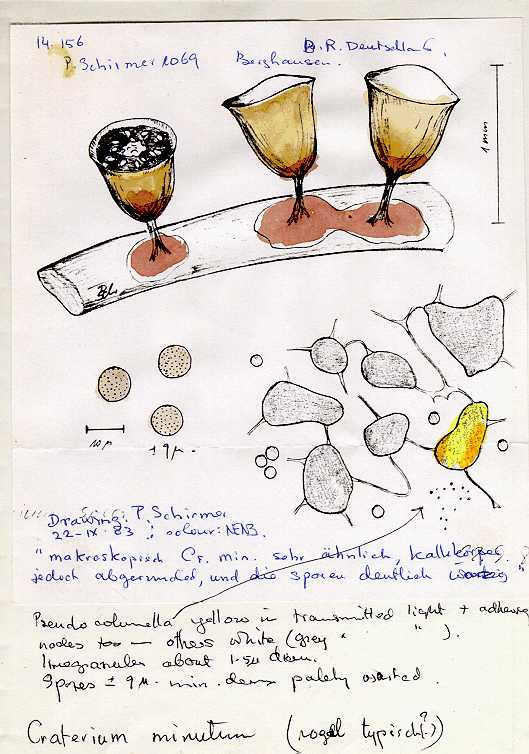 14.156
P. Schirmer 1069 Berghausen. B.R. Deutschland.
1 mm
10 µ
± 9 µ.
Drawing: P. Schirmer
22-IX-83; colour: NENB.
" makroskopisch Cr. min. sehr ähnlich, Kalkkörper
jedoch abgerundet, und die Sporen deutlich warzig "
Pseudocolumella yellow in transmitted light + adhering
nodes too — others white (grey " " ).
Limegranules about 1.5µ diam.
Spores ± 9 µ. min. dense palely warted.
Craterium minutum (nogal typisch?)